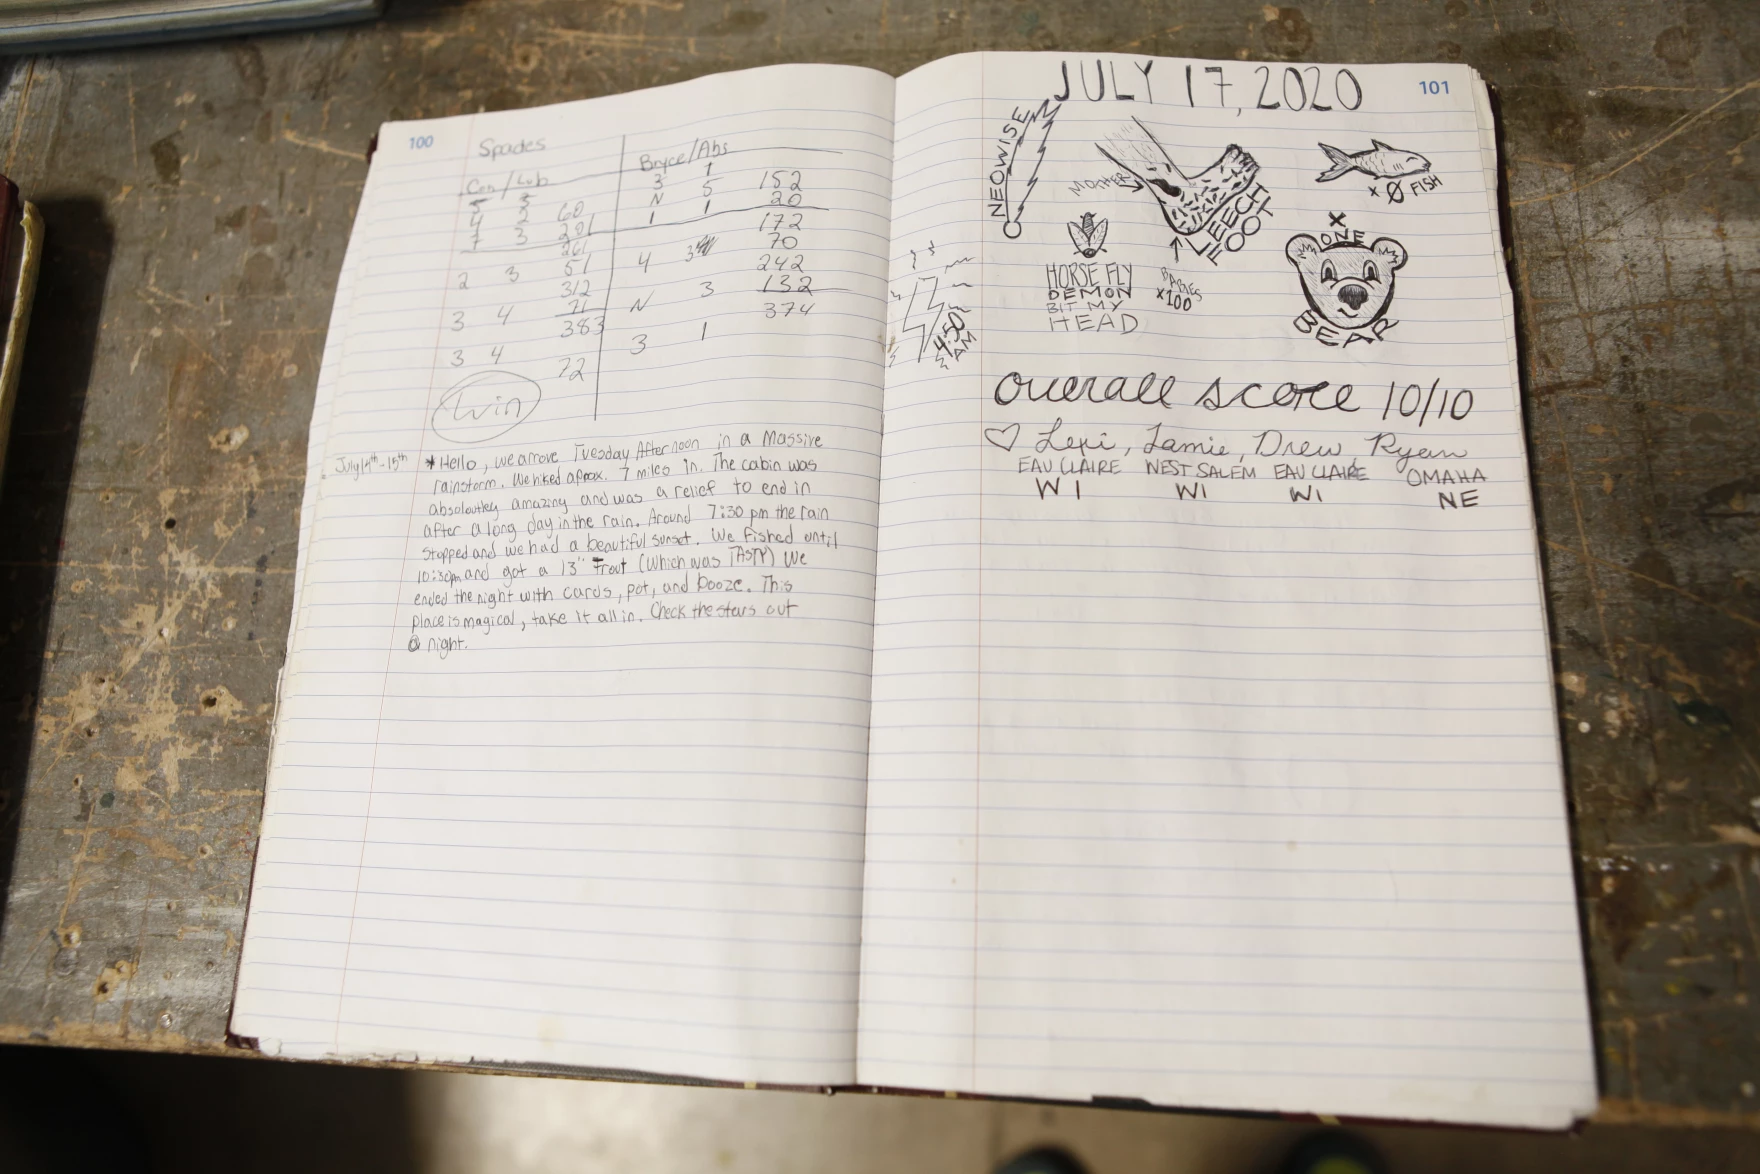 100
Spades
Con/Lub
Bryce/Abs
5 3 60
4 2 201
7 3 261
2 3 51
312
3 4 71
383
3 4 72
Win
3 1
N 5 152
1 1 20
172
4 3 70
242
N 3 132
374
3 1
July 14th-15th
*Hello, we arrove Tuesday Afternoon in a Massive
rainstorm. We hiked aprox. 7 miles in. The cabin was
absoloutley amazing and was a relief to end in
after a long day in the rain. Around 7:30 pm the rain
stopped and we had a beautiful sunset. We fished until
10:30pm and got a 13" Trout (Which was TASTY) We
ended the night with cards, pot, and booze. This
place is magical, take it all in. Check the stars out
@ night.
JULY 17, 2020
101
NEOWISE
MOTHER
LEECH
FOOT
BABIES
x100
x Ø FISH
HORSE FLY
DEMON
BIT MY
HEAD
x
ONE
BEAR
4:50
AM
overall score 10/10
♡ Lexi, Jamie, Drew, Ryan
EAU CLAIRE WEST SALEM EAU CLAIRE OMAHA
WI WI WI NE